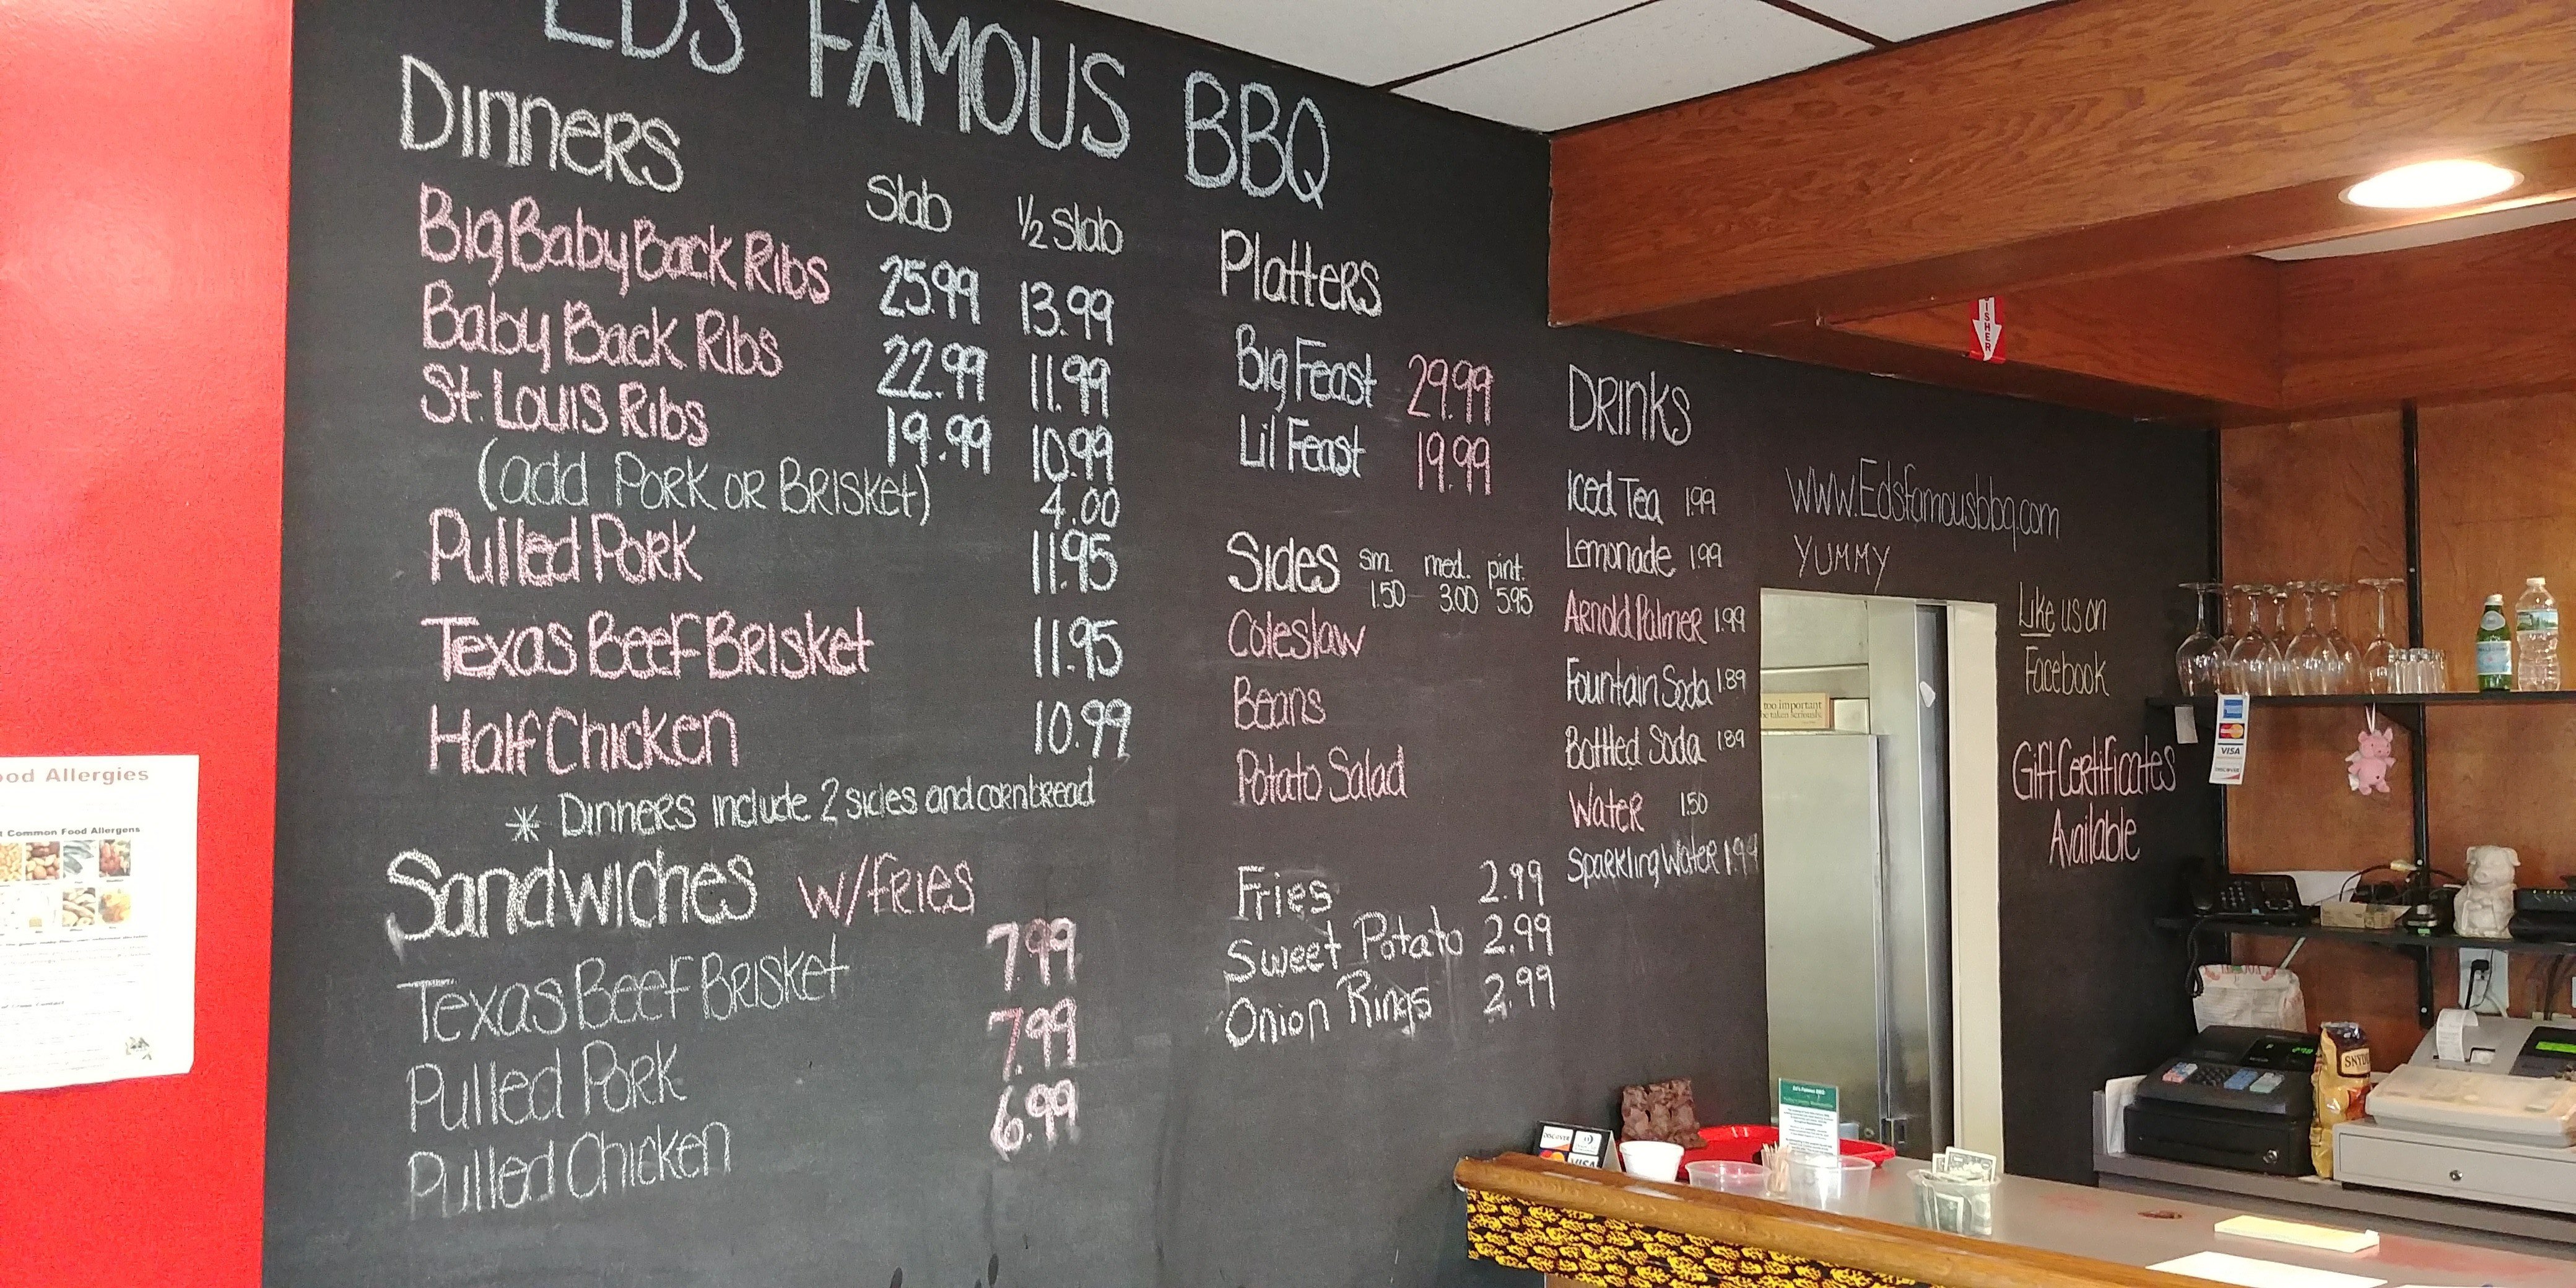 EDS FAMOUS BBQ
Dinners
Slab ½ Slab
Big Baby Back Ribs 25.99 13.99
Baby Back Ribs 22.99 11.99
St. Louis Ribs 19.99 10.99
(add Pork or Brisket) 4.00
Pulled Pork 11.95
Texas Beef Brisket 11.95
Half Chicken 10.99
* Dinners include 2 sides and cornbread
Sandwiches w/fries
Texas Beef Brisket 7.99
Pulled Pork 7.99
Pulled Chicken 6.99
Platters
Big Feast 29.99
Lil Feast 19.99
Sides sm. med. pint.
1.50 3.00 5.95
Coleslaw
Beans
Potato Salad
Fries 2.99
Sweet Potato 2.99
Onion Rings 2.99
Drinks
Iced Tea 1.99
Lemonade 1.99
Arnold Palmer 1.99
Fountain Soda 1.89
Bottled Soda 1.89
Water 1.50
Sparkling Water 1.99
www.Edsfamousbbq.com
YUMMY
Like us on
Facebook
Gift Certificates
Available
ood Allergies
t Common Food Allergens
too important
be taken seriously.
ISHER
MasterCard
VISA
DISCOVER
DISCOVER
VISA
Ed's Famous BBQ
SNYD